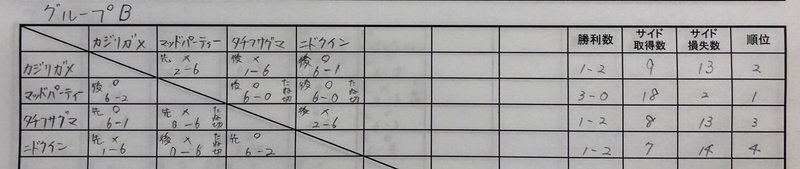 グループB
カジリガメ マッドパーティー タチフサグマ ニドクイン 勝利数 サイド取得数 サイド損失数 順位
カジリガメ 先 × 2-6 後 × 1-6 後 ○ 6-1 1-2 9 13 2
マッドパーティ 後 ○ 6-2 後 ○ 6-0 たね切 後 ○ 6-0 たね切 3-0 18 2 1
タチフサグマ 先 ○ 6-1 先 × 0-6 たね切 後 × 2-6 1-2 8 13 3
ニドクイン 先 × 1-6 後 × 0-6 たね切 先 ○ 6-2 1-2 7 14 4